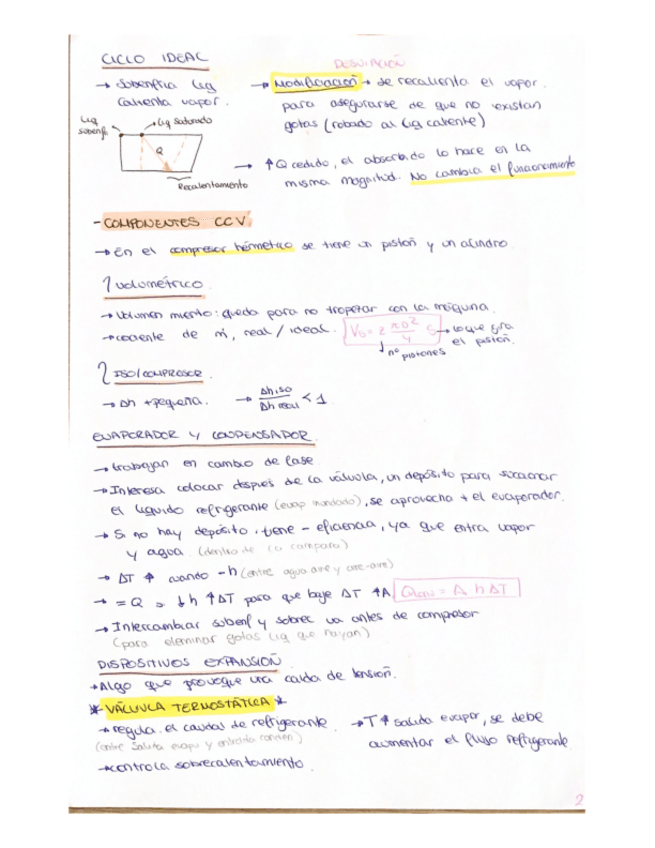 CICLO IDEAL
DESVIACIÓN
→ Subenfría liq
calienta vapor.
→ Modificación → se recalienta el vapor.
para asegurarse de que no existan
gotas (robado al liq caliente)
liq
subenf.
liq saturado
Q
Recalentamiento
→ ↑Q cedido, el absorbido lo hace en la
misma magnitud. No cambia el funcionamiento
- COMPONENTES CCV
→ En el compresor hérmetico se tiene un pistón y un cilindro.
η volumétrico.
→ Volumen muerto: queda para no tropezar con la máquina.
→ cociente de ṁ, real / ideal.
V₀ = z πD²/4 S → lo que gira
el pistón.
↓ nº pistones
η ISO/COMPRESOR
→ Δh + pequeña.
→ Δh iso / Δh real < 1
EVAPORADOR Y CONDENSADOR.
→ trabajan en cambio de fase
→ Interesa colocar después de la válvula, un depósito para
el líquido refrigerante (evap inundado), se aprovecha + el evaporador.
→ Si no hay depósito, tiene - eficiencia, ya que entra vapor
y agua. (dentro de la campana)
→ ΔT ↑ cuando -h (entre agua aire y aire-aire)
→ = Q → ↓h ↑ΔT para que baje ΔT ↑A
= A · h ΔT
→ Intercambiar subenf y sobrec va antes de compresor
(para eleminar gotas liq que hayan)
DISPOSITIVOS EXPANSIÓN
→ Algo que provoque una caída de tensión.
* VÁLVULA TERMOSTÁTICA *
→ regula el caudal de refrigerante
(entre salida evapo y entrada conden)
→ controla sobrecalentamiento.
→ T↑ salida evapor, se debe
aumentar el flujo refrigerante
2